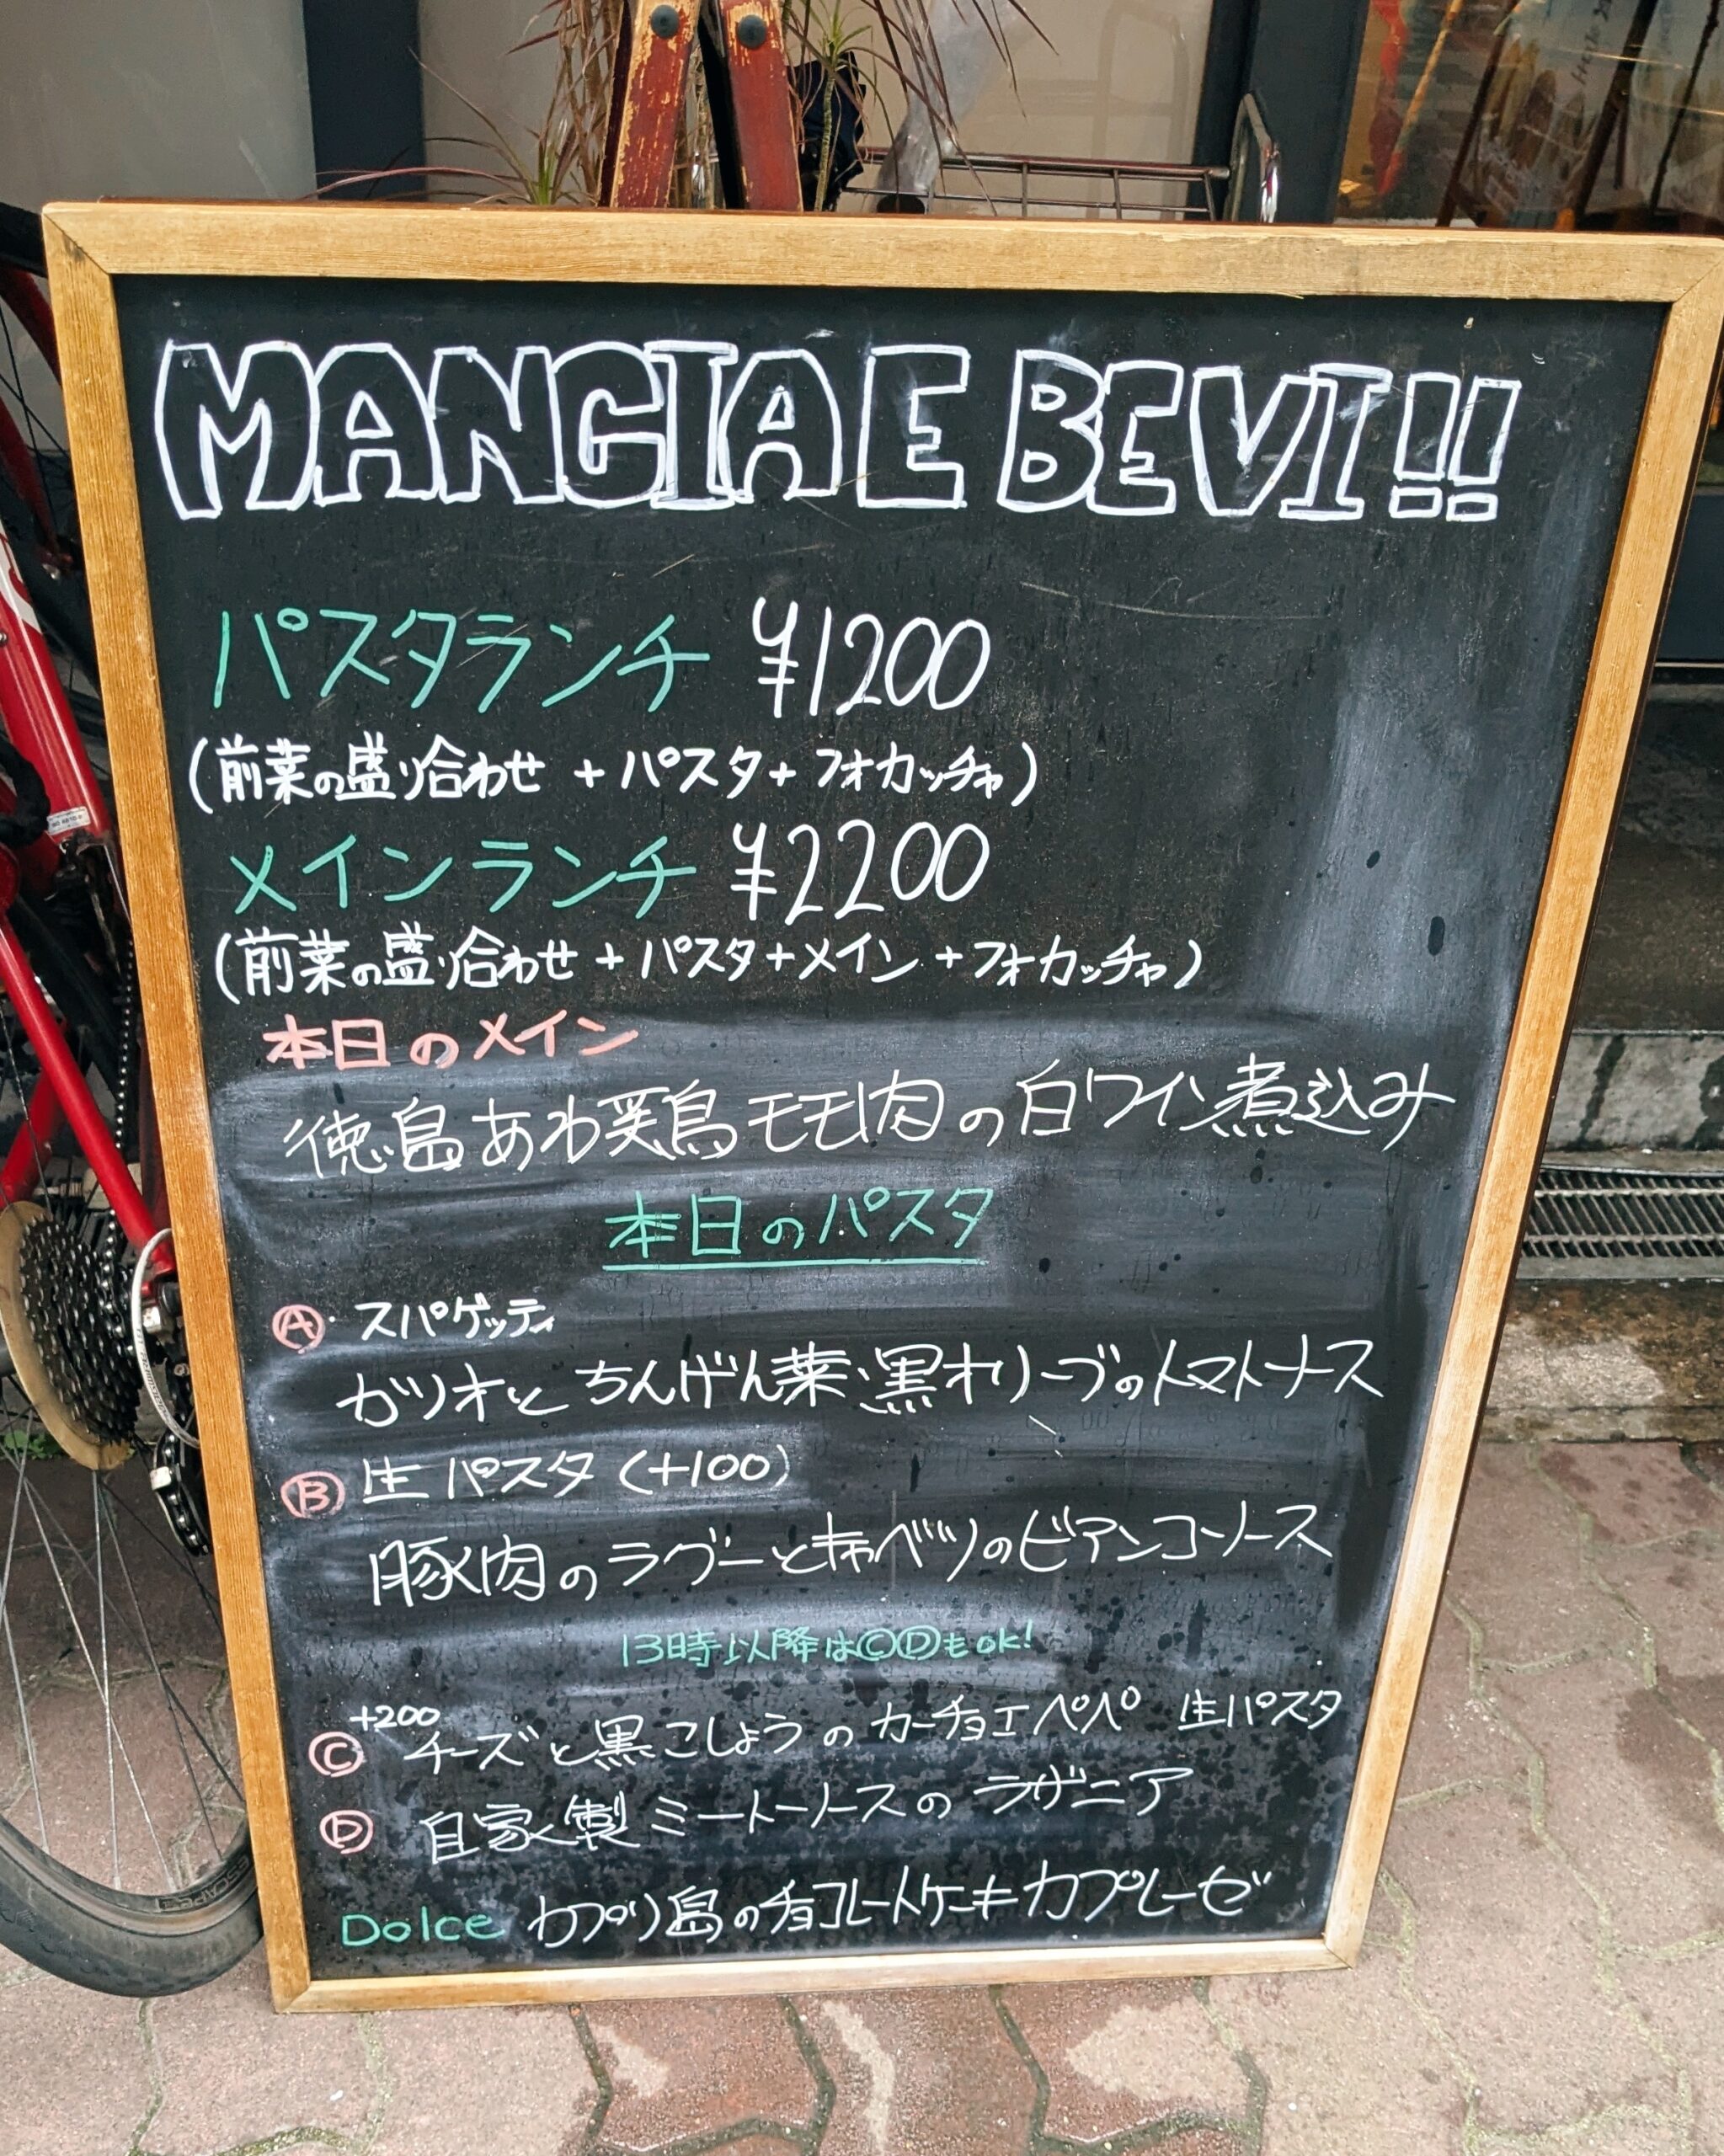 MANGIA E BEVI!!
パスタランチ ¥1200
(前菜の盛り合わせ + パスタ + フォカッチャ)
メインランチ ¥2200
(前菜の盛り合わせ + パスタ + メイン + フォカッチャ)
本日のメイン
徳島あわ 鶏モモ肉の白ワイン煮込み
本日のパスタ
Ⓐ・スパゲッティ
カツオとちんげん菜・黒オリーブのトマトソース
Ⓑ 生パスタ (+100)
豚肉のラグーとキャベツのビアンコソース
13時以降はⒸⒹもok!
+200
Ⓒ チーズと黒こしょうのカーチョエペペ 生パスタ
Ⓓ 自家製ミートソースのラザニア
Dolce カプリ島のチョコレートケーキ カプレーゼ
ESCAPE